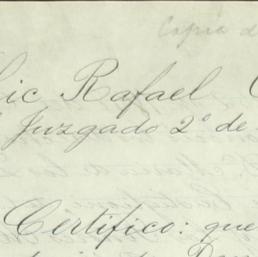 Copia d
lic Rafael
Juzgado 2º de
Certifico: que